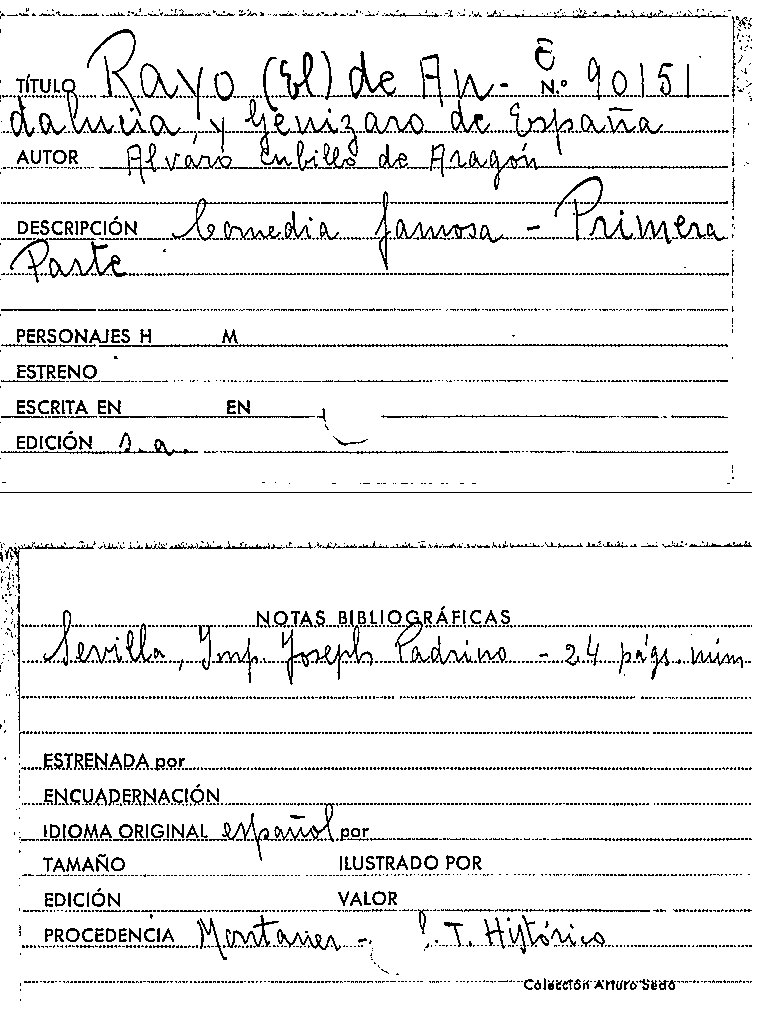 TÍTULO Rayo (El) de An- C N.º 90151
dalucia, y Genizaro de España
AUTOR Alvaro Cubillo de Aragón
DESCRIPCIÓN Comedia famosa - Primera
Parte
PERSONAJES H M
ESTRENO
ESCRITA EN EN
EDICIÓN s.a.
NOTAS BIBLIOGRÁFICAS
Sevilla, Imp. Joseph Padrino - 24 págs. núm
ESTRENADA por
ENCUADERNACIÓN
IDIOMA ORIGINAL español por
TAMAÑO ILUSTRADO POR
EDICIÓN VALOR
PROCEDENCIA Montaner - T. Histórico
Colección Arturo Sedó